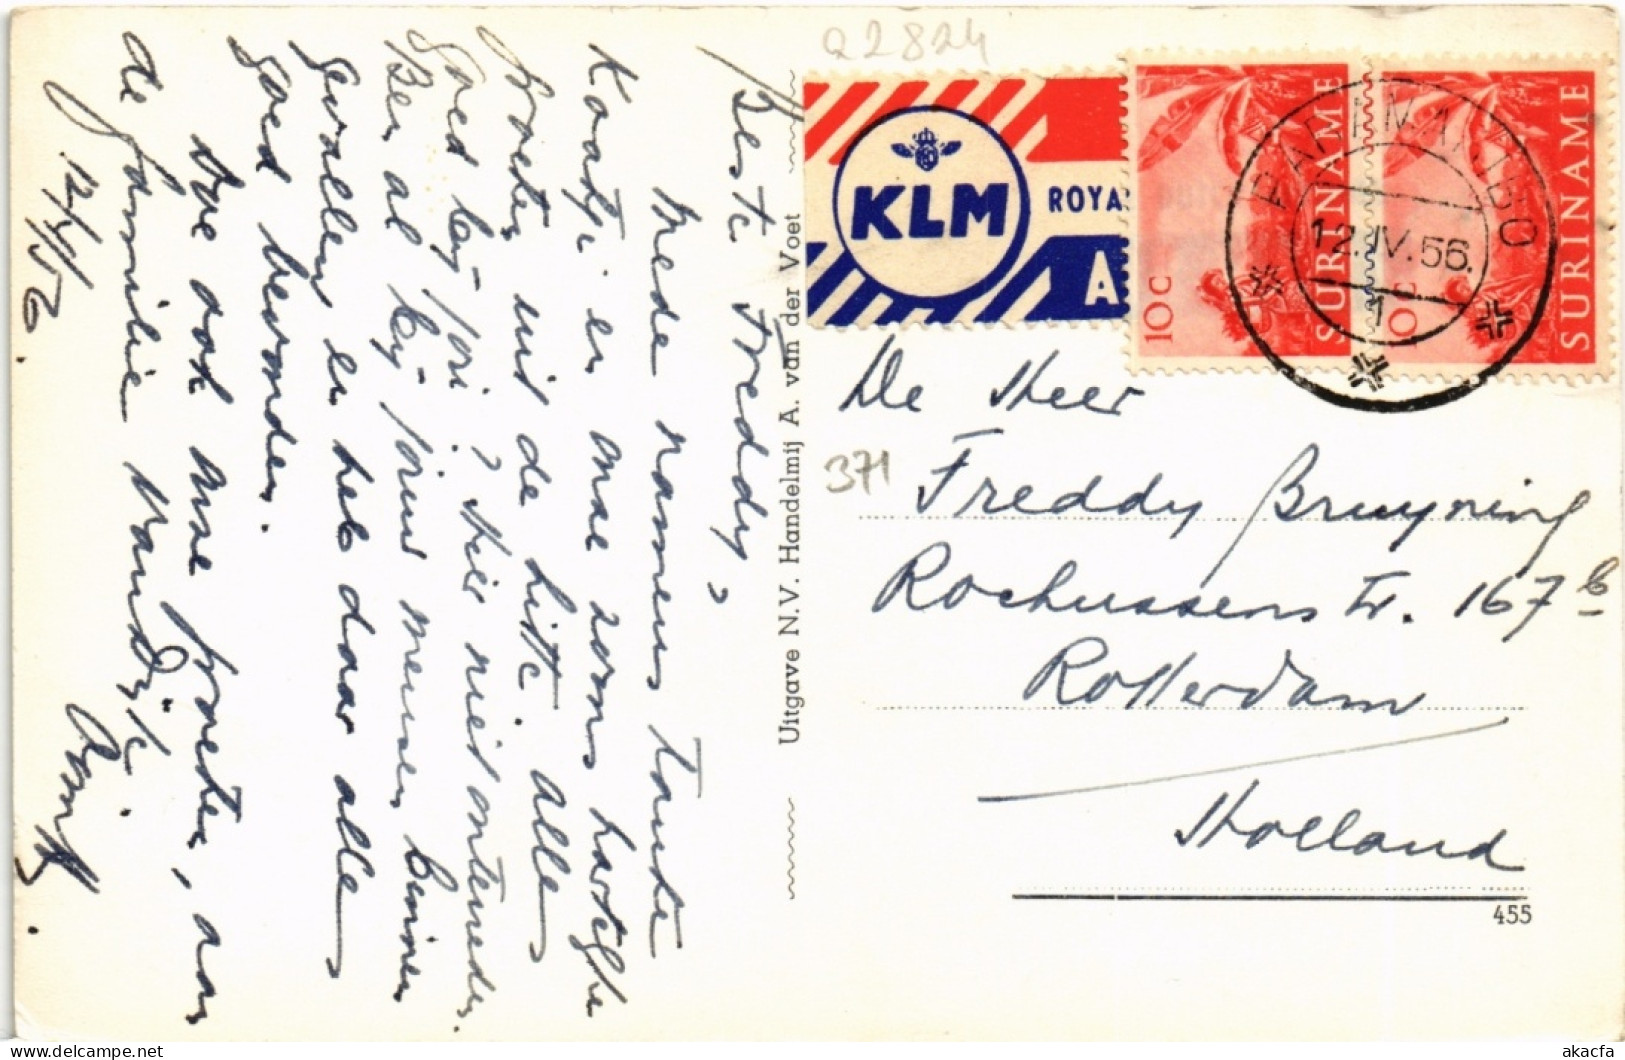 Q2824
KLM
ROYA
A
10C
SURINAME
SURINAME
PARAMARIBO
12.IV.56.
1
Beste Freddy,
Mede namens tante
Kootje en onze zoons hartelijke
groeten uit de hitte. Alle
goed bij jou? Hier niet ontevreden.
Ben al bij jouw mensen binnen
gevallen en heb daar alle
goed bevonden.
Doe ook onze groeten, aan
de familie
12/4/56.
Uitgave N.V. Handelmij A. van der Voet
De Heer
371
Freddy Bruyning
Rochussenstr. 167b
Rotterdam
Holland
455
akacfa